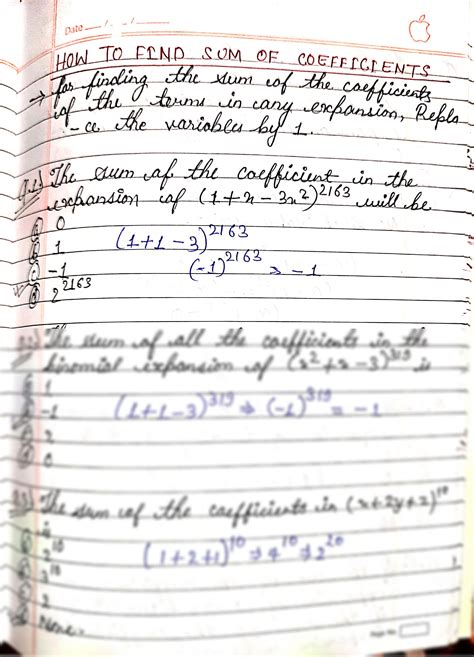 Date
HOW TO FIND SUM OF COEFFICIENTS
→ for finding the sum of the coefficients
of the terms in any expansion, Repla
-ce the variables by 1.
Q.1) The sum of the coefficient in the
expansion of (1+x-3x²)²¹⁶³ will be
(a) 0
(b) 1 (1+1-3)²¹⁶³
(c) -1 (-1)²¹⁶³ ⇒ -1
(d) 2²¹⁶³
The sum of all the coefficients in the
binomial expansion of (x²+x-3)³¹⁹ is
1
-1 (1+1-3)³¹⁹ ⇒ (-1)³¹⁹ = -1
2
0
Q.3) The sum of the coefficients in (x+2y+z)¹⁰
2¹⁰ (1+2+1)¹⁰ ⇒ 4¹⁰ ⇒ 2²⁰
3¹⁰
2
None.
Page No